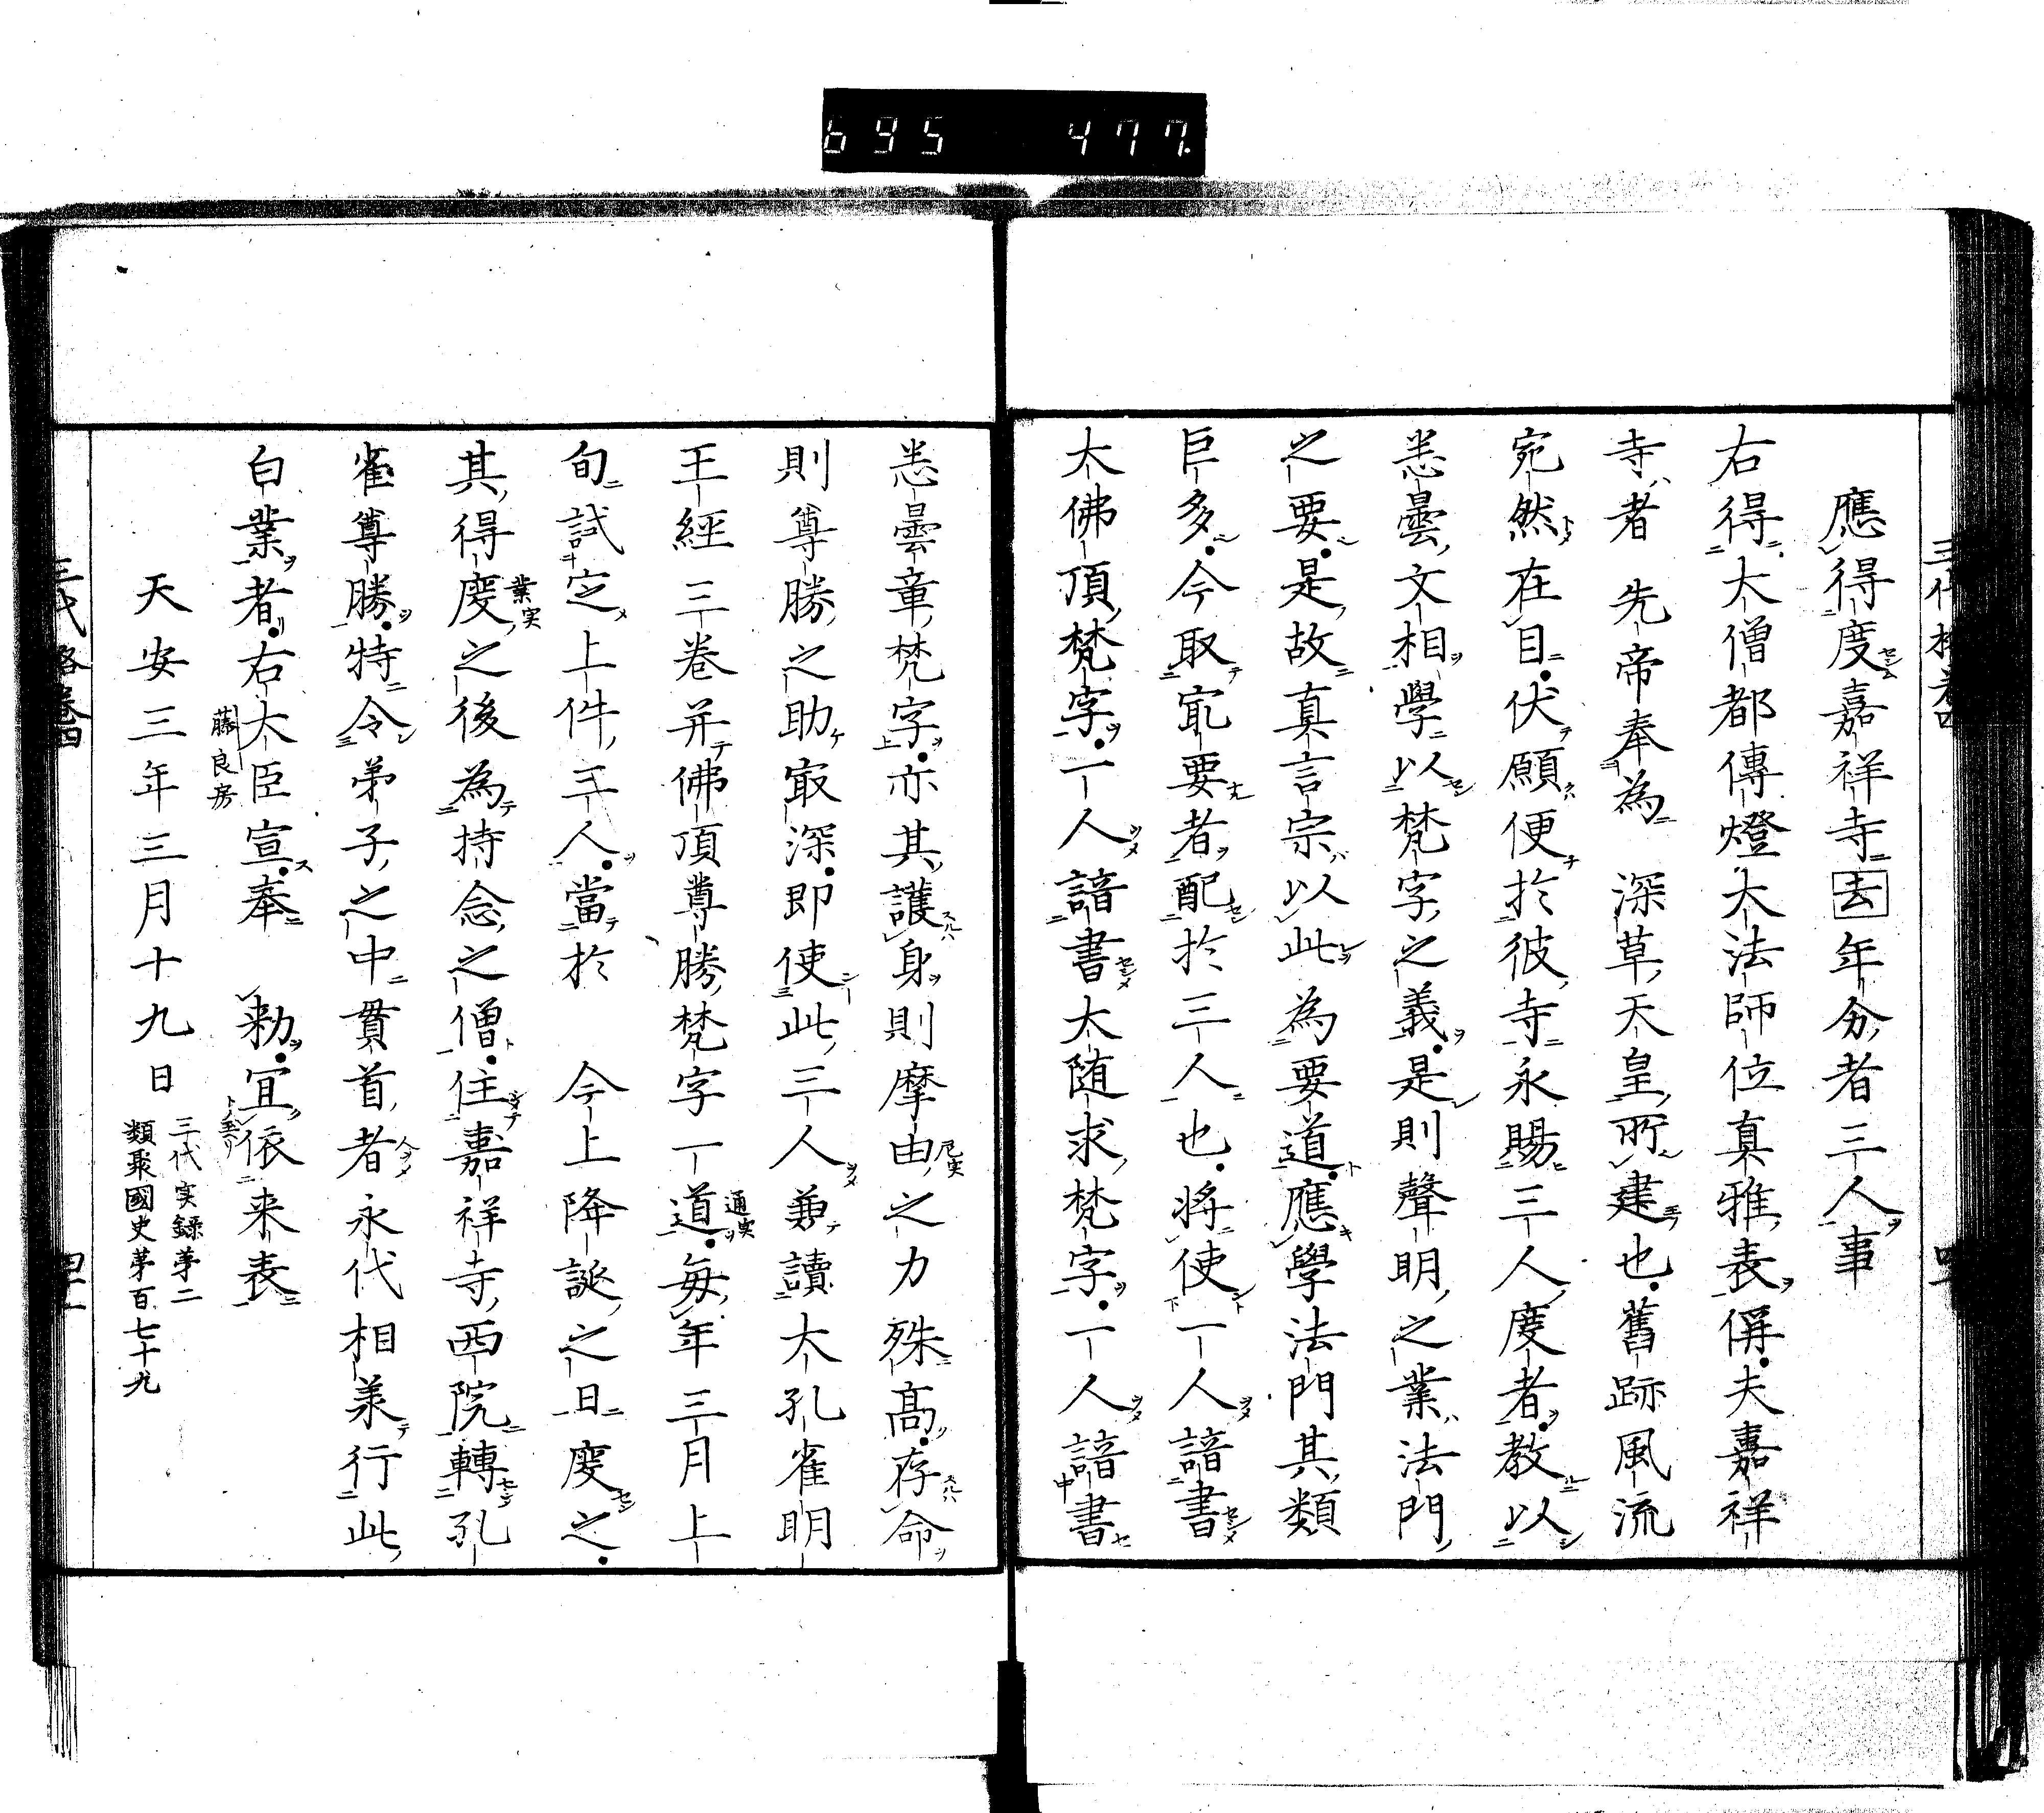 695 477.
應得度嘉祥寺去年分者三人事
右得大僧都傳燈大法師位真雅表偁夫嘉祥
寺者 先帝奉為 深草天皇所建也舊跡風流
宛然在目伏願便於彼寺永賜三人度者教以
悉曇文相學以梵字之義是則聲明之業法門
之要是故真言宗以此為要道應學法門其類
巨多今取㝡要者配於三人也將使一人諳書
大佛頂梵字一人諳書大随求梵字一人諳書
悉曇章梵字亦其護身則摩由之力殊髙存命
則尊勝之助㝡深即使此三人兼讀大孔雀明
王經三卷并佛頂尊勝梵字一道每年三月上
旬試定上件三人當於 今上降誕之日度之
其得度之後為持念之僧住嘉祥寺西院轉孔
雀尊勝特令弟子之中貫首者永代相羕行此
白業者右大臣宣奉 勅宜依来表
藤良房
天安三年三月十九日
三代実録第二
類聚國史第百七十九